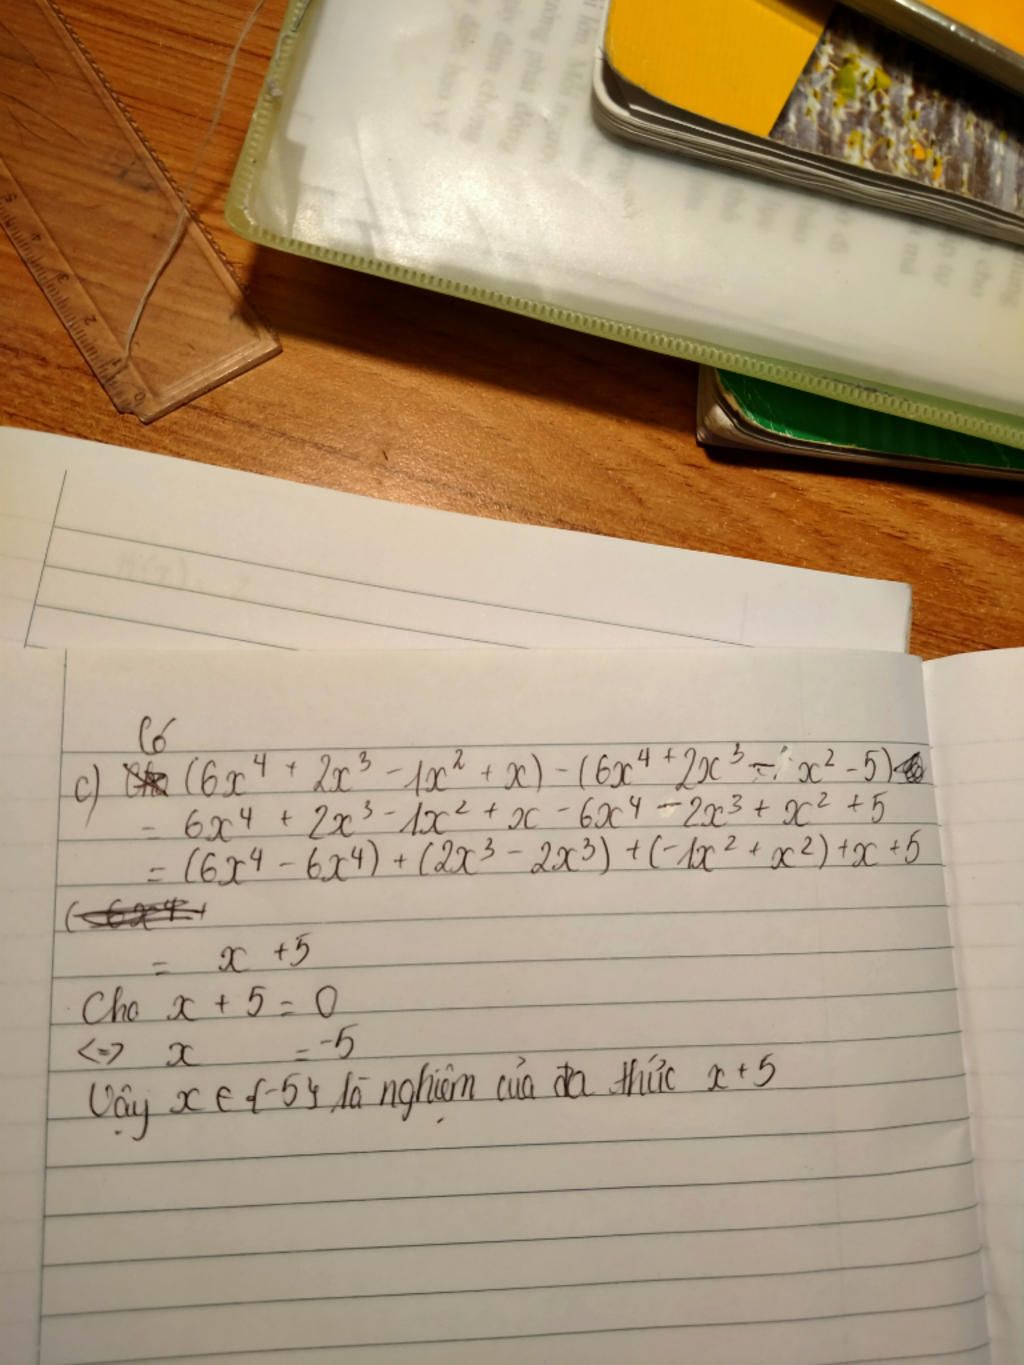 Có
c) (6x⁴ + 2x³ - 1x² + x) - (6x⁴ + 2x³ - x² - 5)
= 6x⁴ + 2x³ - 1x² + x - 6x⁴ - 2x³ + x² + 5
= (6x⁴ - 6x⁴) + (2x³ - 2x³) + (-1x² + x²) + x + 5
= x + 5
Cho x + 5 = 0
<=> x = -5
Vậy x ∈ {-5} là nghiệm của đa thức x + 5